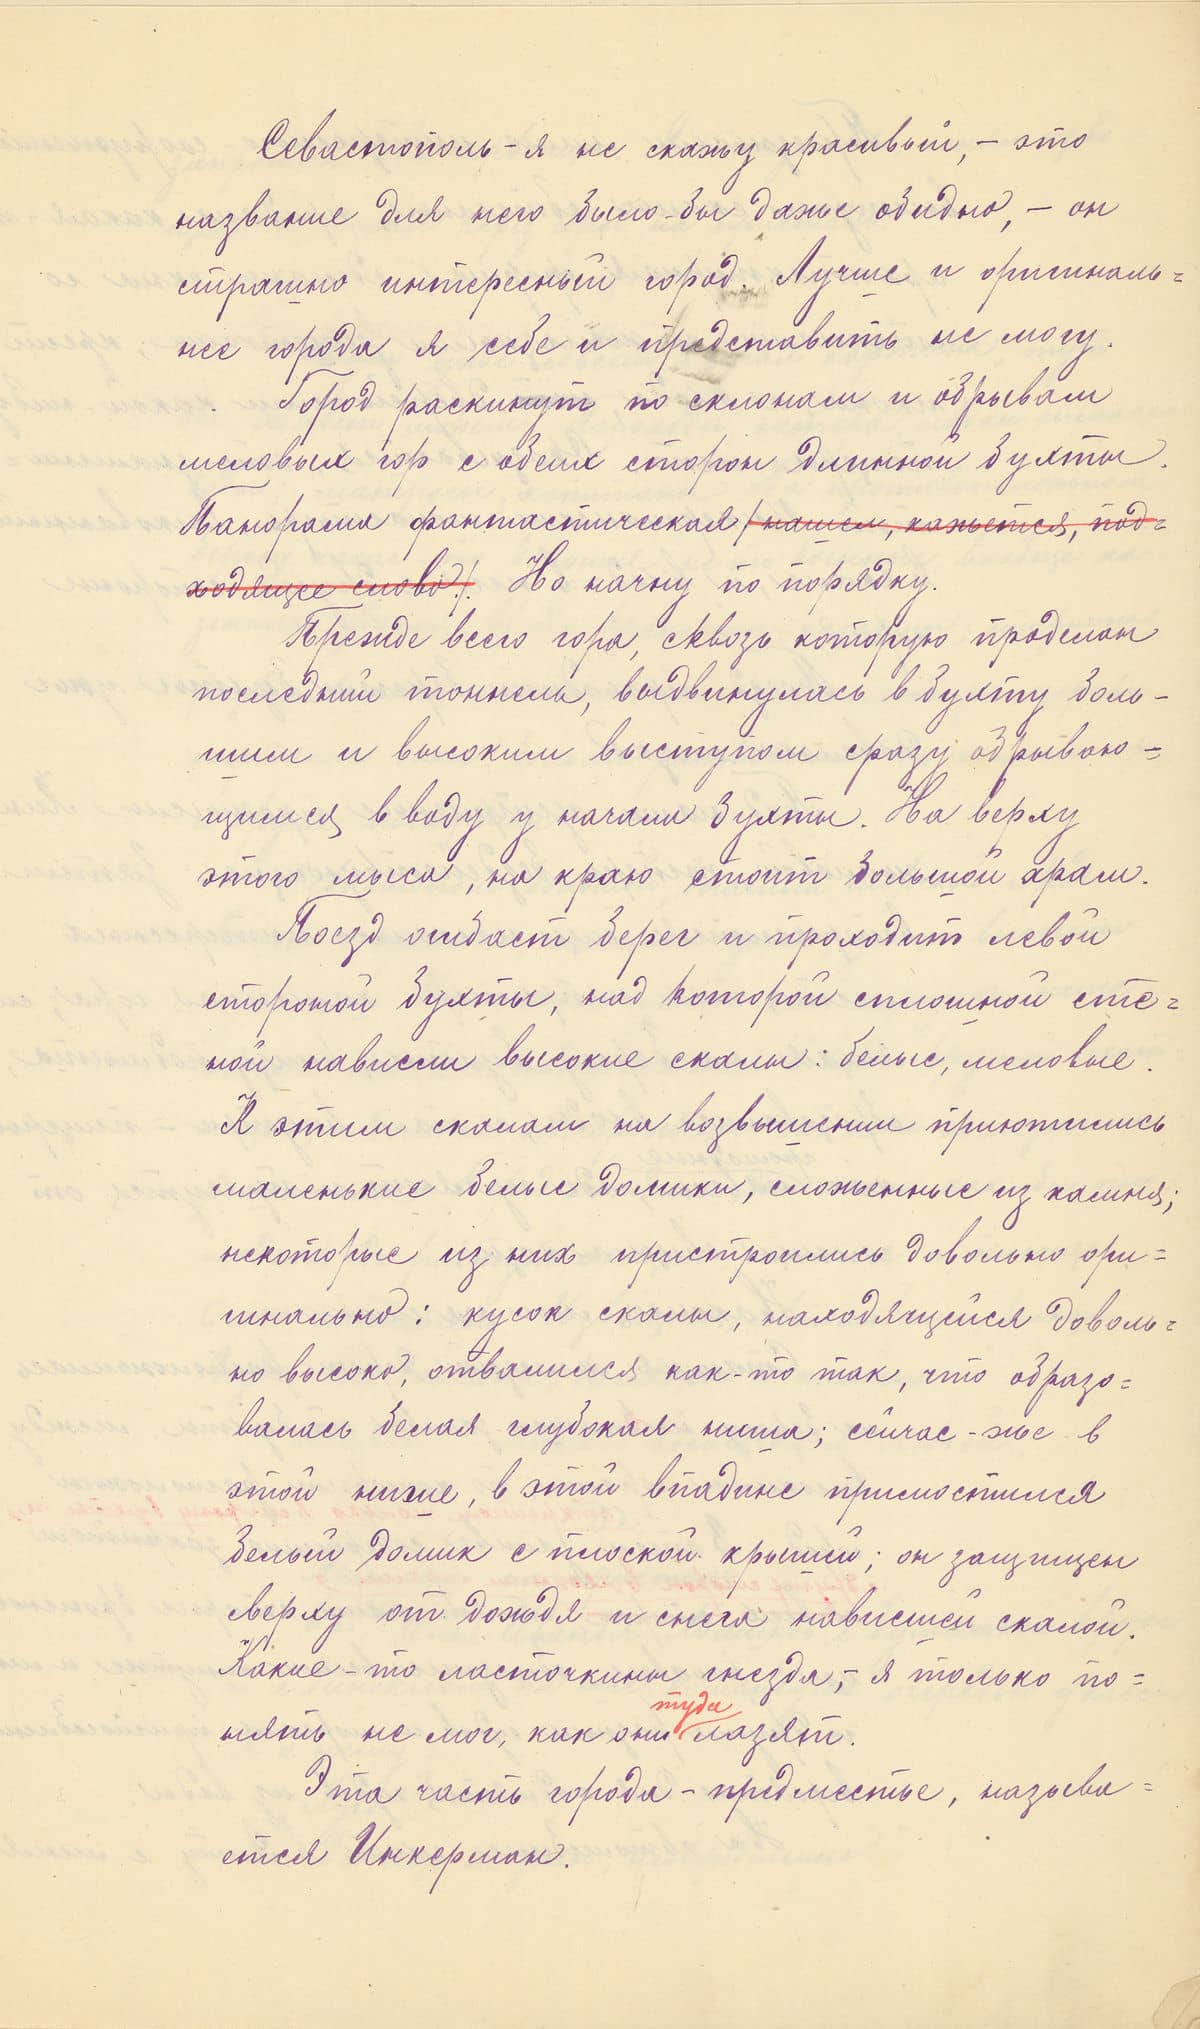 Севастополь - я не скажу красивый, - это
название для него было-бы даже обидно, - он
страшно интересный город. Лучше и оригиналь=
нее города я себе и представить не могу.
Город раскинут по склонам и обрывам
меловых гор с обеих сторон длинной бухты.
Панорама фантастическая /нашел, кажется, под=
ходящее слово!/. Но начну по порядку.
Прежде всего гора, сквозь которую проделан
последний тоннель, выдвинулась в бухту боль-
шим и высоким выступом сразу обрываю-
щимся в воду у начала бухты. На верху
этого мыса, на краю стоит большой храм.
Поезд огибает берег и проходит левой
стороной бухты, над которой сплошной сте=
ной нависли высокие скалы: белые, меловые.
К этим скалам на возвышении приютились
маленькие белые домики, сложенные из камня;
некоторые из них пристроились довольно ори=
гинально: кусок скалы, находящейся доволь=
но высоко, отвалился как-то так, что образо=
валась белая глубокая ниша; сейчас-же в
этой нише, в этой впадине примостился
белый домик с плоской крышей; он защищен
сверху от дождя и снега нависшей скалой.
Какие-то ласточкины гнезда, - я только по=
туда
нять не мог, как они лазят.
Эта часть города - предместье, называ=
ется Инкерман.